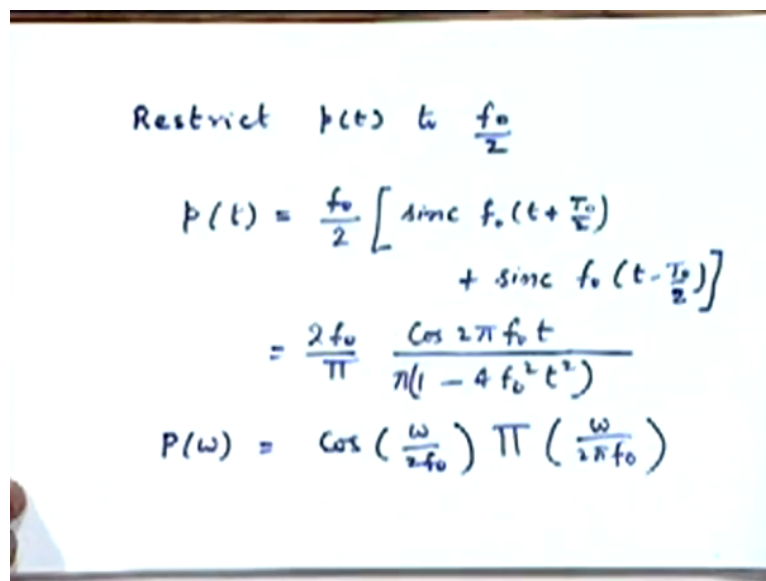 Restrict p(t) to f₀/2
p(t) = f₀/2 [ sinc f₀ (t + T₀/2)
+ sinc f₀ (t - T₀/2) ]
= 2f₀/π cos 2π f₀ t / π(1 - 4 f₀² t²)
P(ω) = cos ( ω/2f₀ ) Π ( ω/2πf₀ )